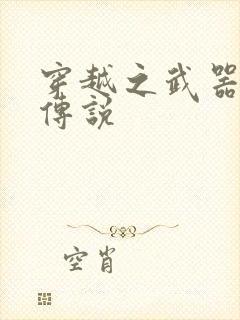 穿越之武器
傳說
空肖